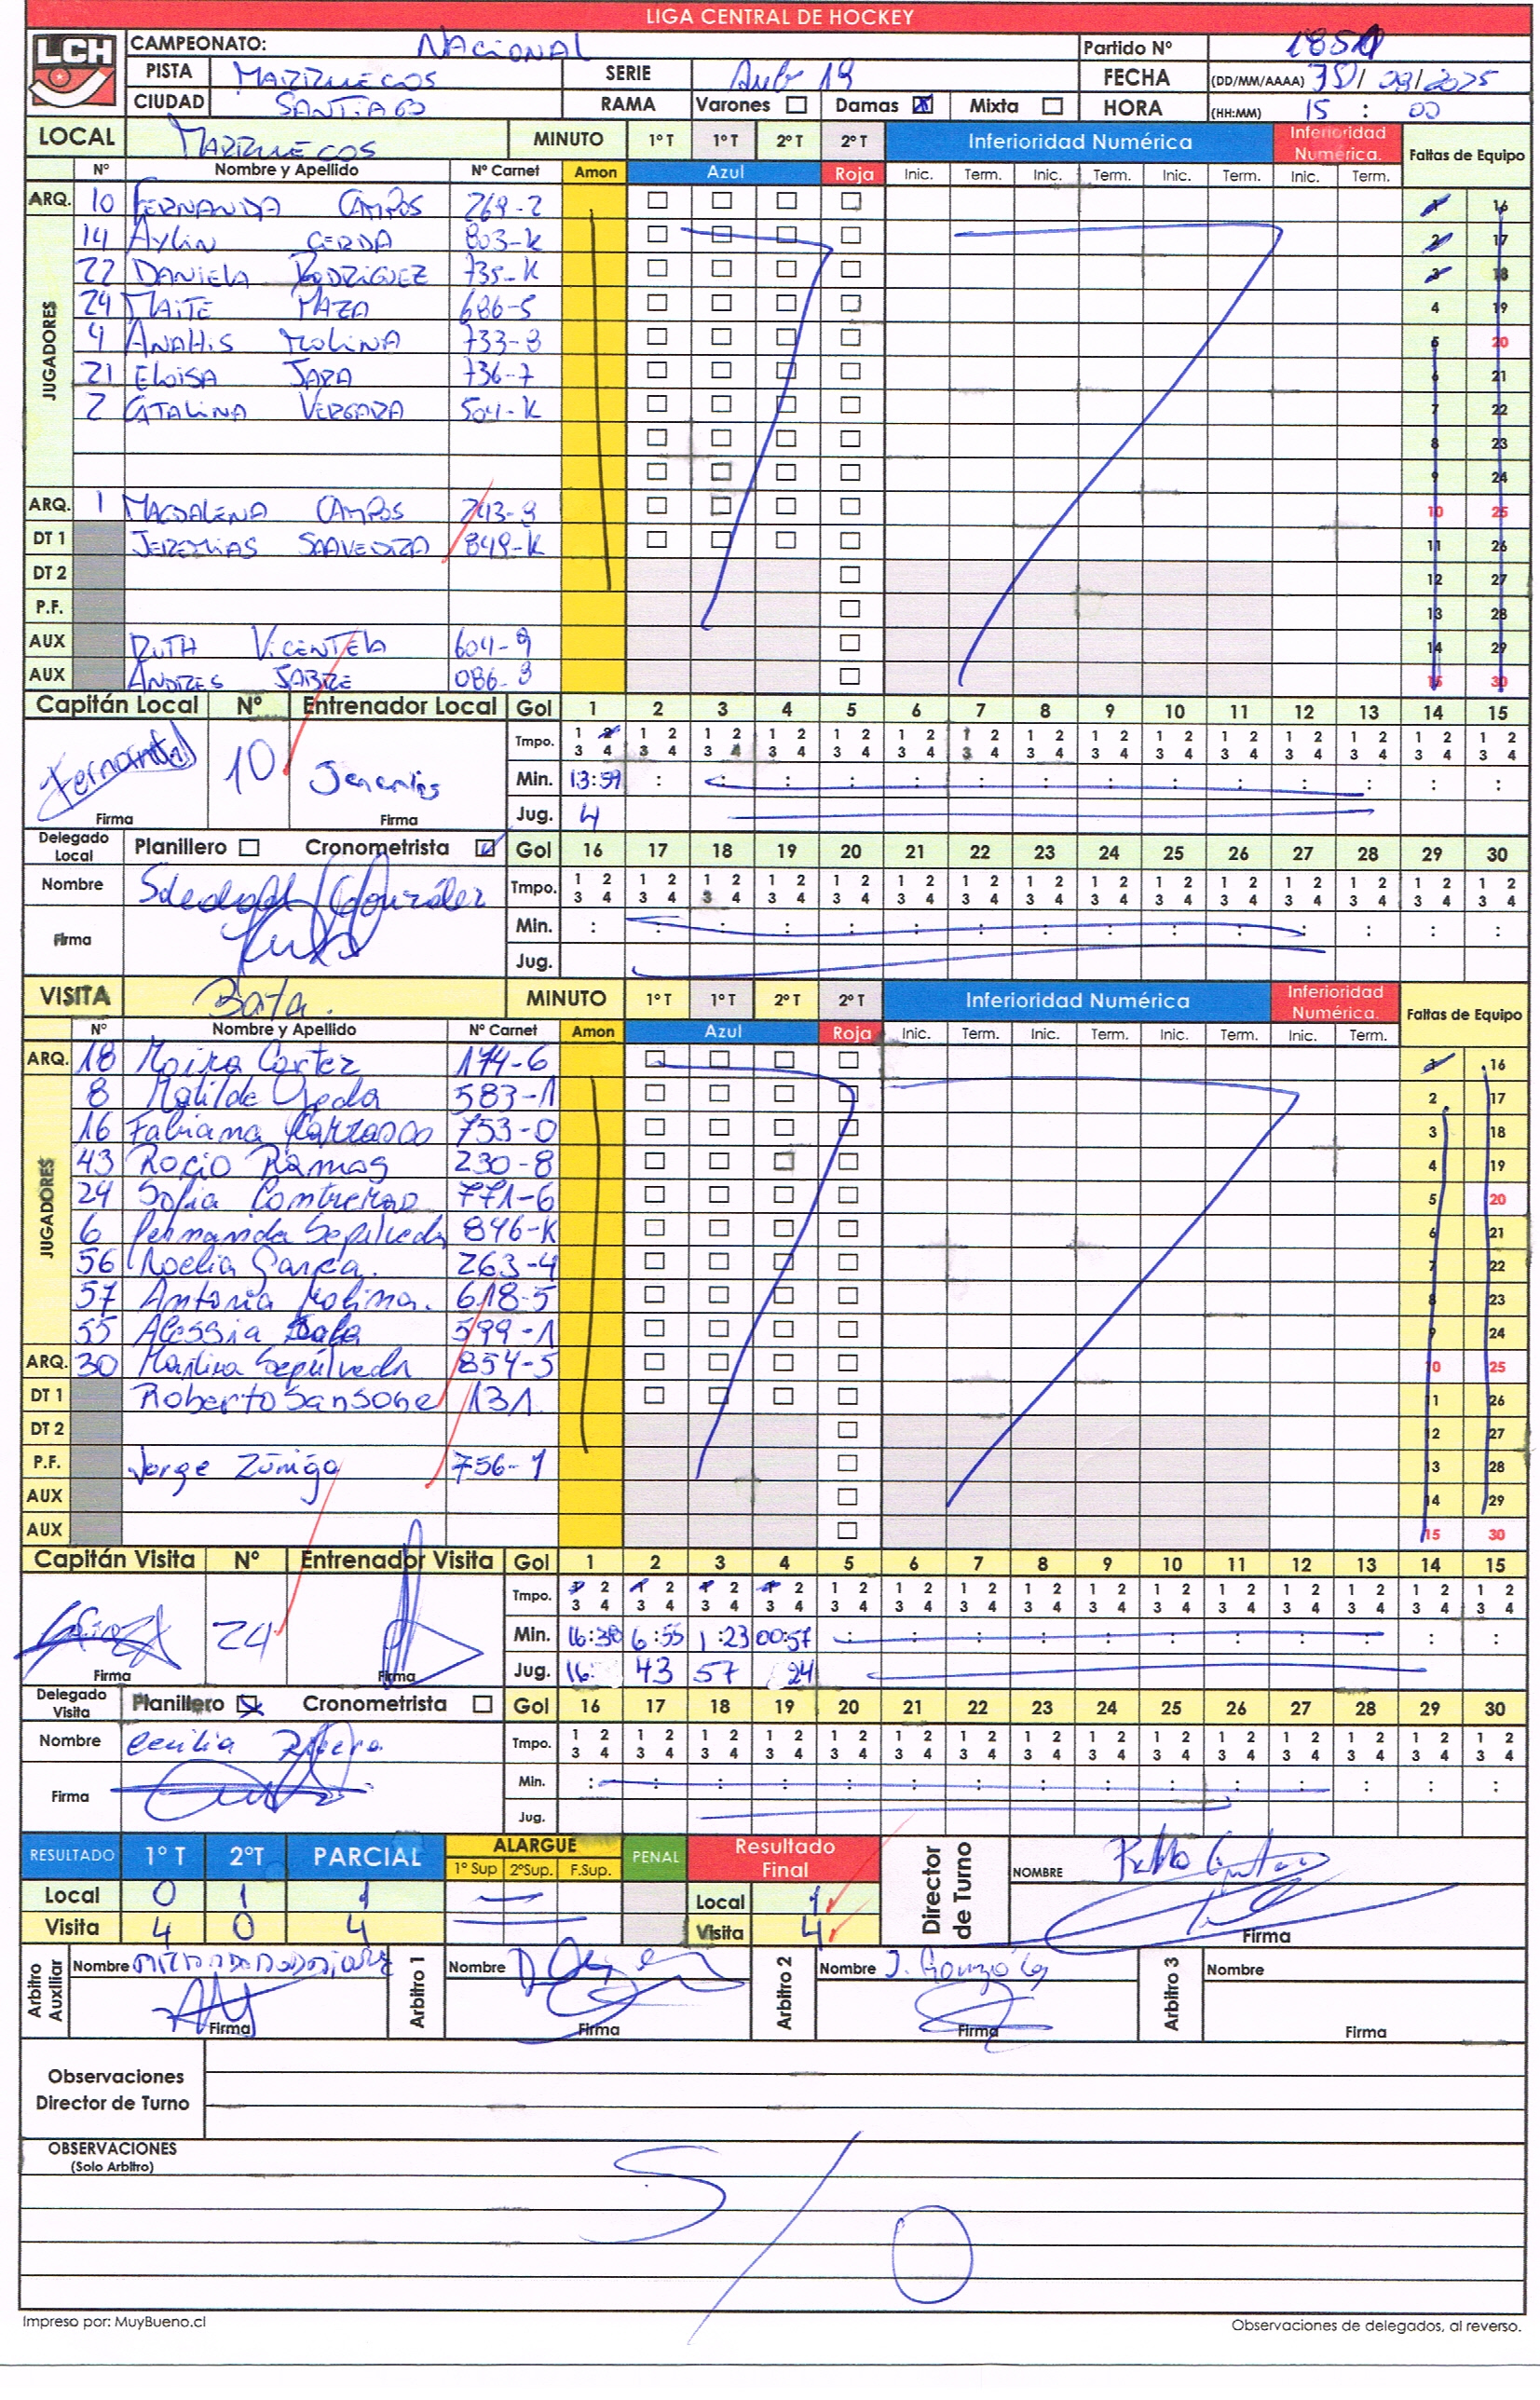 LIGA CENTRAL DE HOCKEY
LCH CAMPEONATO: NACIONAL Partido Nº
PISTA MARRUECOS SERIE Sub 19 FECHA (DD/MM/AAAA) 30/ 08/2025
CIUDAD SANTIAGO RAMA Varones Damas X Mixta HORA (HH:MM) 15 : 00
LOCAL MARRUECOS MINUTO 1º T 1º T 2º T 2º T Inferioridad Numérica Inferioridad Numérica. Faltas de Equipo
Nº Nombre y Apellido Nº Carnet Amon Azul Roja Inic. Term. Inic. Term. Inic. Term. Inic. Term.
ARQ. 10 FERNANDA CAMPOS 269-2 1 16
JUGADORES
14 AYLIN CERDA 803-K 2 17
22 DANIELA RODRIGUEZ 735-K 3 18
24 MAITE MAZA 686-5 4 19
4 ANAHIS MOLINA 733-8 5 20
21 ELOISA JARA 736-7 6 21
2 CATALINA VERGARA 504-K 7 22
8 23
9 24
ARQ. 1 MAGDALENA CAMPOS 743-9 10 25
DT 1 JEREMIAS SAAVEDRA 849-K 11 26
DT 2 12 27
P.F. 13 28
AUX RUTH VICENTELA 604-9 14 29
AUX ANDRES JABRE 086-3 15 30
Capitán Local Nº Entrenador Local Gol 1 2 3 4 5 6 7 8 9 10 11 12 13 14 15
Fernanda 10 Jeremias
Tmpo. 1 2 1 2 1 2 1 2 1 2 1 2 1 2 1 2 1 2 1 2 1 2 1 2 1 2 1 2 1 2
3 4 3 4 3 4 3 4 3 4 3 4 3 4 3 4 3 4 3 4 3 4 3 4 3 4 3 4 3 4
Min. 13:59 : : : : : : : : : : : : : :
Firma Firma Jug. 4
Delegado Local Planillero Cronometrista ✓ Gol 16 17 18 19 20 21 22 23 24 25 26 27 28 29 30
Nombre Soledad González Tmpo. 1 2 1 2 1 2 1 2 1 2 1 2 1 2 1 2 1 2 1 2 1 2 1 2 1 2 1 2 1 2
3 4 3 4 3 4 3 4 3 4 3 4 3 4 3 4 3 4 3 4 3 4 3 4 3 4 3 4 3 4
Firma Min. : : : : : : : : : : : : : : :
Jug.
VISITA Bata. MINUTO 1º T 1º T 2º T 2º T Inferioridad Numérica Inferioridad Numérica. Faltas de Equipo
Nº Nombre y Apellido Nº Carnet Amon Azul Roja Inic. Term. Inic. Term. Inic. Term. Inic. Term.
ARQ. 18 Moira Cortez 174-6 1 16
JUGADORES
8 Matilde Ojeda 583-1 2 17
16 Fabiana Carrasco 753-0 3 18
43 Rocio Ramos 230-8 4 19
24 Sofia Contreras 771-6 5 20
6 Fernanda Sepúlveda 846-K 6 21
56 Noelia García. 263-4 7 22
57 Antonia Molina. 618-5 8 23
55 Alessia 599-1 9 24
ARQ. 30 Martina Sepúlveda 854-5 10 25
DT 1 Roberto Sansone 131 11 26
DT 2 12 27
P.F. Jorge Zúñiga 756-1 13 28
AUX 14 29
AUX 15 30
Capitán Visita Nº Entrenador Visita Gol 1 2 3 4 5 6 7 8 9 10 11 12 13 14 15
24
Tmpo. 1 2 1 2 1 2 1 2 1 2 1 2 1 2 1 2 1 2 1 2 1 2 1 2 1 2 1 2 1 2
3 4 3 4 3 4 3 4 3 4 3 4 3 4 3 4 3 4 3 4 3 4 3 4 3 4 3 4 3 4
Min. 16:38 6:55 1:23 00:57 : : : : : : : : : : :
Firma Firma Jug. 16 43 57 24
Delegado Visita Planillero X Cronometrista Gol 16 17 18 19 20 21 22 23 24 25 26 27 28 29 30
Nombre Cecilia Tmpo. 1 2 1 2 1 2 1 2 1 2 1 2 1 2 1 2 1 2 1 2 1 2 1 2 1 2 1 2 1 2
3 4 3 4 3 4 3 4 3 4 3 4 3 4 3 4 3 4 3 4 3 4 3 4 3 4 3 4 3 4
Firma Min. : : : : : : : : : : : : : : :
Jug.
RESULTADO 1º T 2ºT PARCIAL ALARGUE 1º Sup 2ºSup. F.Sup. PENAL Resultado Final Director de Turno NOMBRE
Local 0 1 1 Local 1
Visita 4 0 4 Visita 4 Firma
Arbitro Auxiliar Nombre Arbitro 1 Nombre Arbitro 2 Nombre J. González Arbitro 3 Nombre
Firma Firma Firma Firma
Observaciones
Director de Turno
OBSERVACIONES
(Solo Arbitro)
S / O
Impreso por: MuyBueno.cl Observaciones de delegados, al reverso.